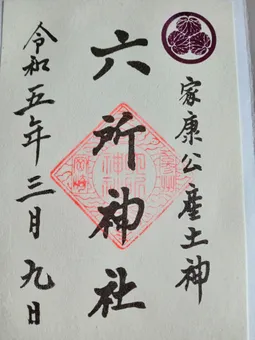 家康公産土神
六所神社
令和五年三月九日